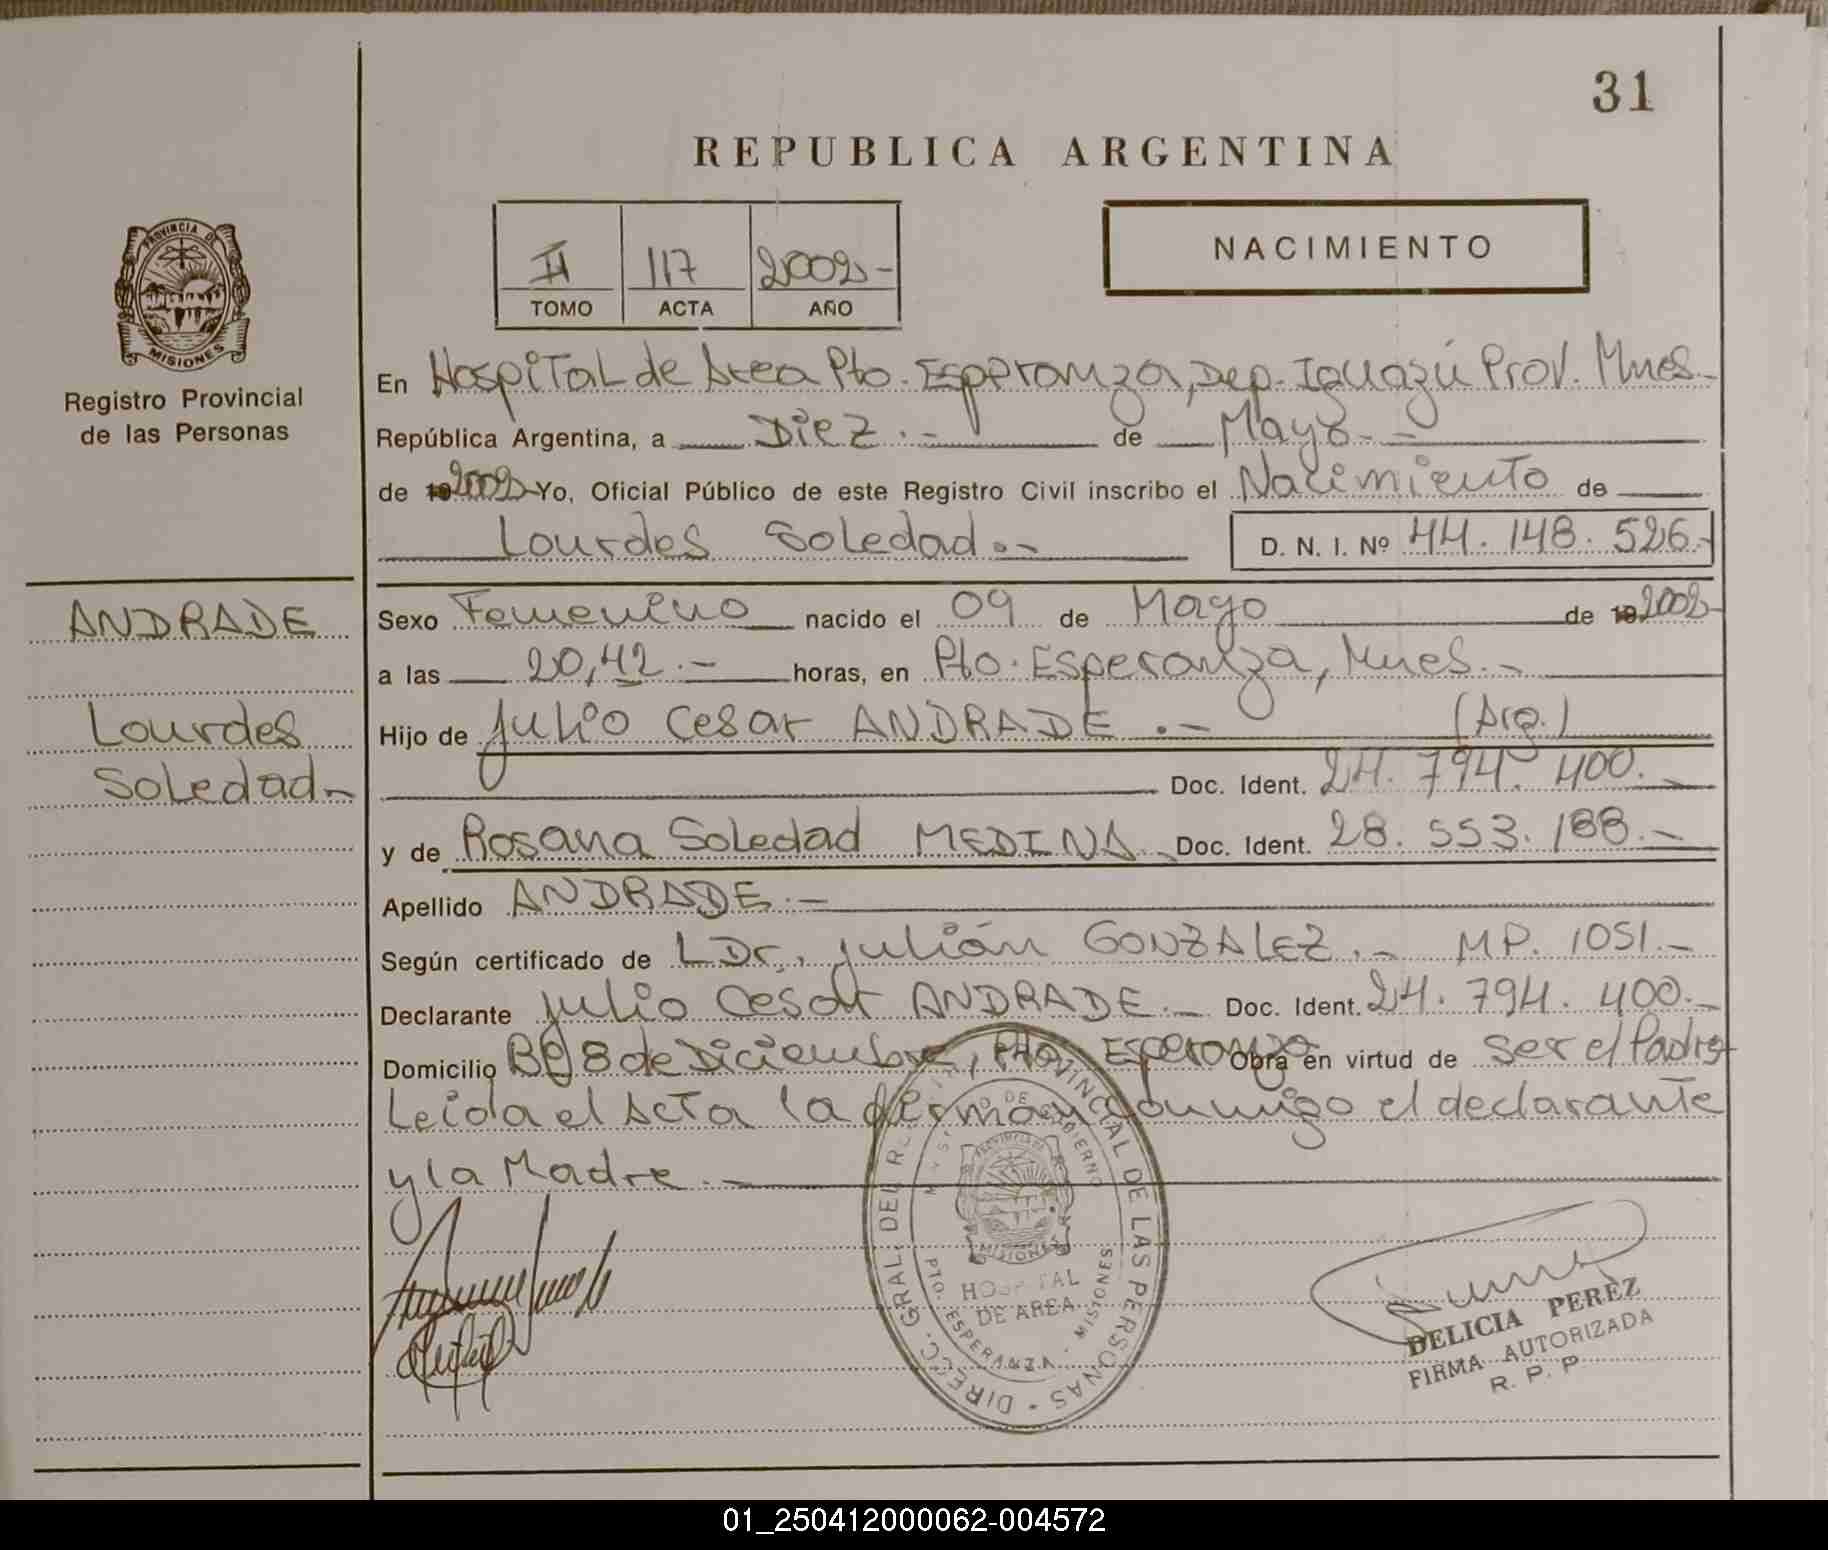 31
REPUBLICA ARGENTINA
II 117 2002-
TOMO ACTA AÑO
NACIMIENTO
PROVINCIA DE
MISIONES
Registro Provincial
de las Personas
En Hospital de Area Pto. Esperanza, Dep. Iguazú Prov. Mnes.-
República Argentina, a Diez.- de Mayo.-
de 19 2002 Yo, Oficial Público de este Registro Civil inscribo el Nacimiento de
Lourdes Soledad.-
D. N. I. Nº 44.148.526.-
ANDRADE
Lourdes
Soledad.-
Sexo Femenino nacido el 09 de Mayo de 19 2002-
a las 20,42.- horas, en Pto. Esperanza, Mnes.-
Hijo de Julio Cesar ANDRADE.- (Arg.)
Doc. Ident. 24.794.400.-
y de Rosana Soledad MEDINA Doc. Ident. 28.553.188.-
Apellido ANDRADE.-
Según certificado de Dr. Julián GONZALEZ.- MP. 1051.-
Declarante Julio Cesar ANDRADE.- Doc. Ident. 24.794.400.-
Domicilio Bº 8 de Diciembre, Pto. Esperanza Obra en virtud de ser el Padre
Leida el Acta la firman conmigo el declarante
y la Madre.-
DIRECC. GRAL. DEL REGISTRO PROVINCIAL DE LAS PERSONAS
MINISTERIO DE GOBIERNO
PROVINCIA DE
MISIONES
HOSPITAL
DE AREA
PTO. ESPERANZA - MISIONES
DELICIA PEREZ
FIRMA AUTORIZADA
R. P. P
01_250412000062-004572